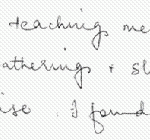 teaching me
athering + st
ise. I found